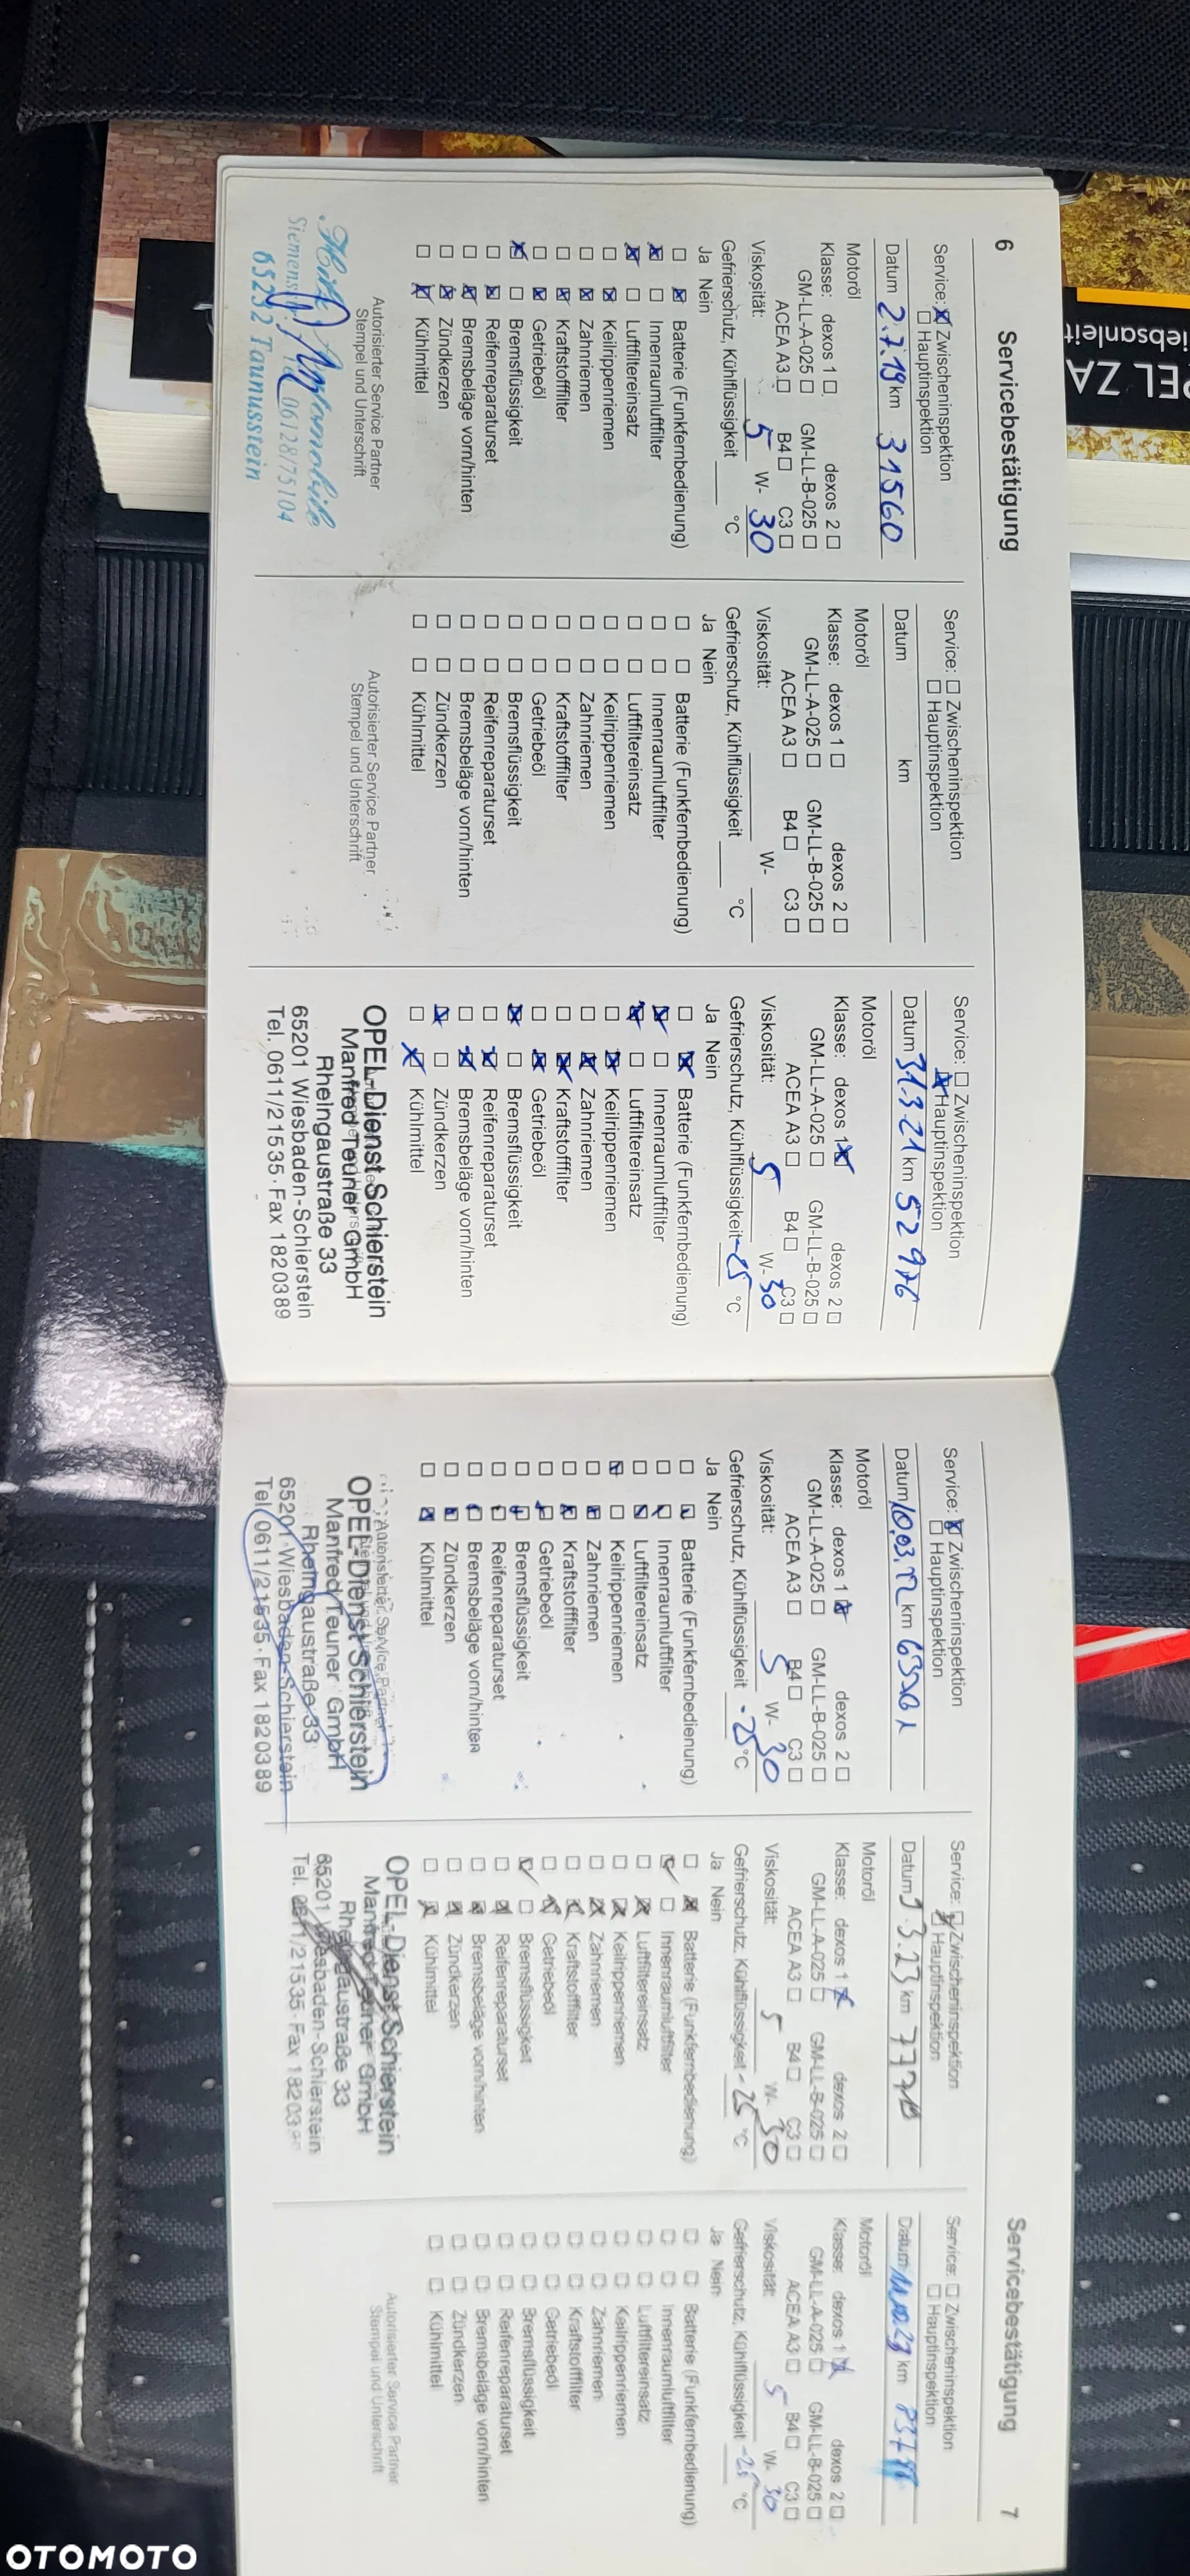 6 Servicebestätigung
Service: ☒ Zwischeninspektion
☐ Hauptinspektion
Datum 2.7.19 km 31560
Motoröl
Klasse: dexos 1 ☐ dexos 2 ☐
GM-LL-A-025 ☐ GM-LL-B-025 ☐
ACEA A3 ☐ B4 ☐ C3 ☐
Viskosität: 5 W- 30
Gefrierschutz, Kühlflüssigkeit °C
Ja Nein
☐ ☒ Batterie (Funkfernbedienung)
☒ ☐ Innenraumluftfilter
☒ ☐ Luftfiltereinsatz
☐ ☒ Keilrippenriemen
☐ ☒ Zahnriemen
☐ ☒ Kraftstofffilter
☐ ☒ Getriebeöl
☒ ☐ Bremsflüssigkeit
☐ ☒ Reifenreparaturset
☐ ☒ Bremsbeläge vorn/hinten
☐ ☒ Zündkerzen
☐ ☒ Kühlmittel
Autorisierter Service Partner
Stempel und Unterschrift
Automobile
06128/75104
65232 Taunusstein
Service: ☐ Zwischeninspektion
☐ Hauptinspektion
Datum km
Motoröl
Klasse: dexos 1 ☐ dexos 2 ☐
GM-LL-A-025 ☐ GM-LL-B-025 ☐
ACEA A3 ☐ B4 ☐ C3 ☐
Viskosität: W-
Gefrierschutz, Kühlflüssigkeit °C
Ja Nein
☐ ☐ Batterie (Funkfernbedienung)
☐ ☐ Innenraumluftfilter
☐ ☐ Luftfiltereinsatz
☐ ☐ Keilrippenriemen
☐ ☐ Zahnriemen
☐ ☐ Kraftstofffilter
☐ ☐ Getriebeöl
☐ ☐ Bremsflüssigkeit
☐ ☐ Reifenreparaturset
☐ ☐ Bremsbeläge vorn/hinten
☐ ☐ Zündkerzen
☐ ☐ Kühlmittel
Autorisierter Service Partner
Stempel und Unterschrift
Service: ☐ Zwischeninspektion
☒ Hauptinspektion
Datum 31.3.21 km 52976
Motoröl
Klasse: dexos 1 ☒ dexos 2 ☐
GM-LL-A-025 ☐ GM-LL-B-025 ☐
ACEA A3 ☐ B4 ☐ C3 ☐
Viskosität: 5 W- 30
Gefrierschutz, Kühlflüssigkeit -25 °C
Ja Nein
☐ ☒ Batterie (Funkfernbedienung)
☒ ☐ Innenraumluftfilter
☒ ☐ Luftfiltereinsatz
☐ ☒ Keilrippenriemen
☐ ☒ Zahnriemen
☐ ☒ Kraftstofffilter
☐ ☒ Getriebeöl
☒ ☐ Bremsflüssigkeit
☐ ☒ Reifenreparaturset
☐ ☒ Bremsbeläge vorn/hinten
☒ ☐ Zündkerzen
☐ ☒ Kühlmittel
OPEL-Dienst Schierstein
Manfred Teuner GmbH
Rheingaustraße 33
65201 Wiesbaden-Schierstein
Tel. 0611/21535 · Fax 1820389
Servicebestätigung 7
Service: ☒ Zwischeninspektion
☐ Hauptinspektion
Datum 10.03.22 km
Motoröl
Klasse: dexos 1 ☒ dexos 2 ☐
GM-LL-A-025 ☐ GM-LL-B-025 ☐
ACEA A3 ☐ B4 ☐ C3 ☐
Viskosität: 5 W- 30
Gefrierschutz, Kühlflüssigkeit -25 °C
Ja Nein
☐ ☒ Batterie (Funkfernbedienung)
☐ ☒ Innenraumluftfilter
☐ ☒ Luftfiltereinsatz
☒ ☐ Keilrippenriemen
☐ ☒ Zahnriemen
☐ ☒ Kraftstofffilter
☐ ☒ Getriebeöl
☐ ☒ Bremsflüssigkeit
☐ ☒ Reifenreparaturset
☐ ☒ Bremsbeläge vorn/hinten
☐ ☒ Zündkerzen
☐ ☒ Kühlmittel
Autorisierter Service Partner
OPEL-Dienst Schierstein
Manfred Teuner GmbH
Rheingaustraße 33
65201 Wiesbaden-Schierstein
Tel. 0611/21535 · Fax 1820389
Service: ☐ Zwischeninspektion
☒ Hauptinspektion
Datum 3.23 km
Motoröl
Klasse: dexos 1 ☒ dexos 2 ☐
GM-LL-A-025 ☐ GM-LL-B-025 ☐
ACEA A3 ☐ B4 ☐ C3 ☐
Viskosität: 5 W- 30
Gefrierschutz, Kühlflüssigkeit -25 °C
Ja Nein
☐ ☒ Batterie (Funkfernbedienung)
☒ ☐ Innenraumluftfilter
☐ ☒ Luftfiltereinsatz
☐ ☒ Keilrippenriemen
☐ ☒ Zahnriemen
☐ ☒ Kraftstofffilter
☐ ☒ Getriebeöl
☒ ☐ Bremsflüssigkeit
☐ ☒ Reifenreparaturset
☐ ☒ Bremsbeläge vorn/hinten
☐ ☒ Zündkerzen
☐ ☒ Kühlmittel
OPEL-Dienst Schierstein
Manfred Teuner GmbH
Rheingaustraße 33
65201 Wiesbaden-Schierstein
Tel. 0611/21535 · Fax
Service: ☐ Zwischeninspektion
☐ Hauptinspektion
Datum km
Motoröl
Klasse: dexos 1 ☒ dexos 2 ☐
GM-LL-A-025 ☐ GM-LL-B-025 ☐
ACEA A3 ☐ B4 ☐ C3 ☐
Viskosität: 5 W- 30
Gefrierschutz, Kühlflüssigkeit -25 °C
Ja Nein
☐ ☐ Batterie (Funkfernbedienung)
☐ ☐ Innenraumluftfilter
☐ ☐ Luftfiltereinsatz
☐ ☐ Keilrippenriemen
☐ ☐ Zahnriemen
☐ ☐ Kraftstofffilter
☐ ☐ Getriebeöl
☐ ☐ Bremsflüssigkeit
☐ ☐ Reifenreparaturset
☐ ☐ Bremsbeläge vorn/hinten
☐ ☐ Zündkerzen
☐ ☐ Kühlmittel
Autorisierter Service Partner
Stempel und Unterschrift
OTOMOTO